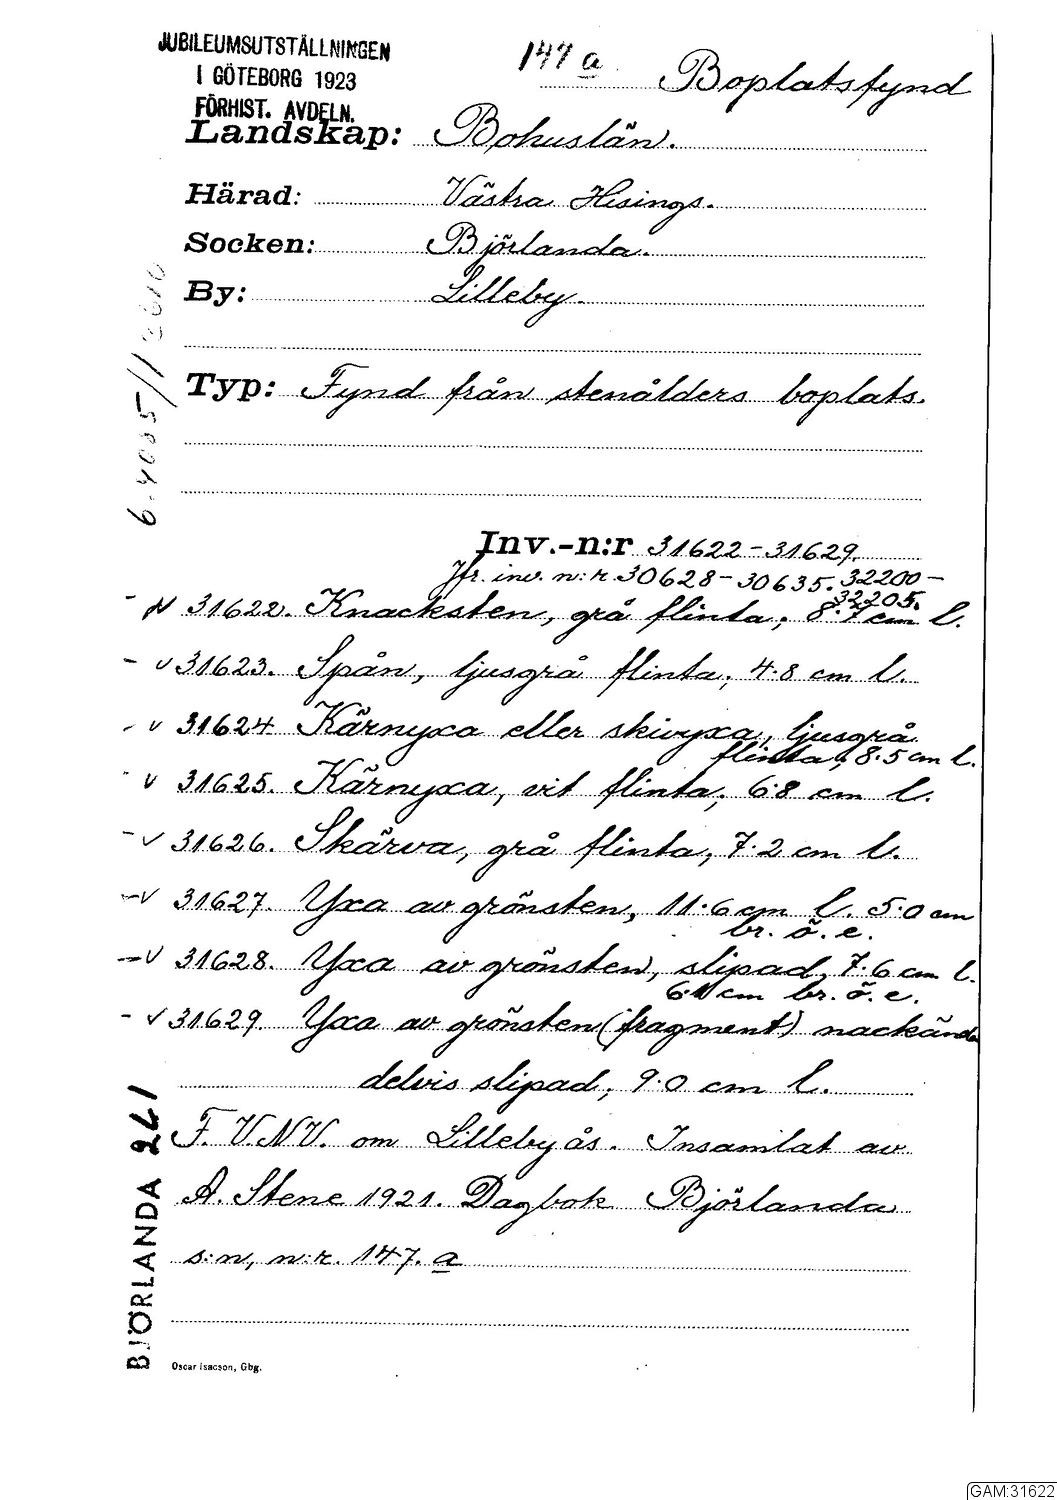 JUBILEUMSUTSTÄLLNINGEN
I GÖTEBORG 1923
FÖRHIST. AVDELN.
147 a Boplatsfynd
Landskap: Bohuslän.
Härad: Västra Hisings.
Socken: Björlanda.
By: Lilleby.
Typ: Fynd från stenålders boplats.
Inv.-n:r 31622-31629.
Jfr. inv. n:r. 30628-30635. 32200-
32205.
31622. Knacksten, grå flinta, 8.7 cm l.
v 31623. Spån, ljusgrå flinta, 4.8 cm l.
v 31624 Kärnyxa eller skivyxa, ljusgrå
flinta, 8.5 cm l.
v 31625. Kärnyxa, vit flinta, 6.8 cm l.
v 31626. Skärva, grå flinta, 7.2 cm l.
v 31627. Yxa av grönsten, 11.6 cm l. 5.0 cm
br. ö. e.
v 31628. Yxa av grönsten, slipad, 7.6 cm l.
6.1 cm br. ö. e.
v 31629. Yxa av grönsten (fragment) nackända
delvis slipad, 9.0 cm l.
F. V.N.V. om Lillebyås. Insamlat av
A. Stene 1921. Dagbok Björlanda
s:n, n:r. 147. a
BJÖRLANDA 261
Oscar Isacson, Gbg.
GAM:31622